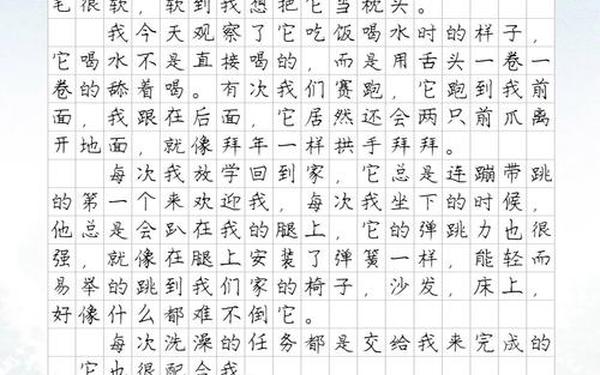 毛很软，软到我想把它当枕头。
我今天观察了它吃饭喝水时的样子，
它喝水不是直接喝的，而是用舌头一卷一
卷的舔着喝。有次我们赛跑，它跑到我前
面，我跟在后面，它居然还会两只前爪离
开地面，就像拜年一样拱手拜拜。
每次我放学回到家，它总是连蹦带跳
的第一个来欢迎我，每次我坐下的时候，
他总是会趴在我的腿上，它的弹跳力也很
强，就像在腿上安装了弹簧一样，能轻而
易举的跳到我们家的椅子，沙发，床上，
好像什么都难不倒它。
每次洗澡的任务都是交给我来完成的
，它也很配合我，